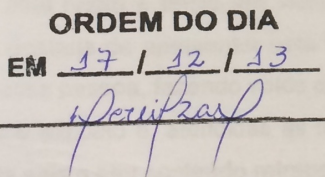 ORDEM DO DIA
EM 17 / 12 / 13